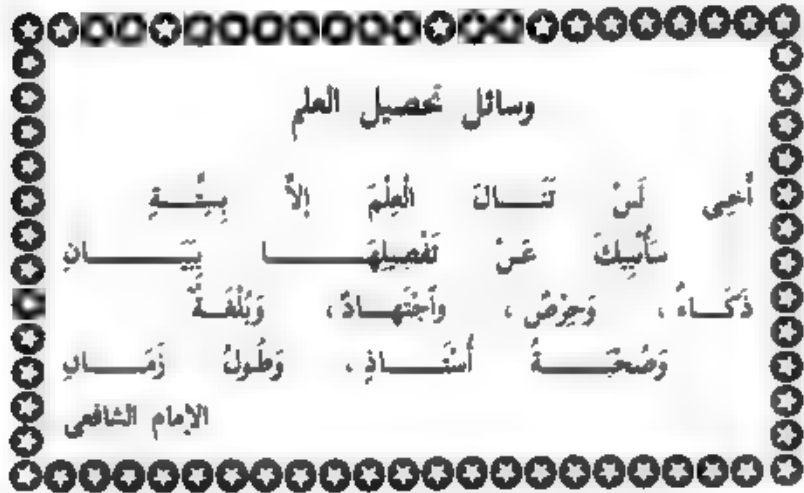 وسائل تحصيل العلم
أَخِى لَنْ تَنَالَ الْعِلْمَ إِلاَّ بِسِتَّةٍ
سَأُنْبِيكَ عَنْ تَفْصِيلِهَا بِبَيَانِ
ذَكَاءٌ ، وَحِرْصٌ ، وَاجْتِهَادٌ ، وَبُلْغَةٌ
وَصُحْبَةُ أُسْتَاذٍ ، وَطُولُ زَمَانِ
الإمام الشافعى